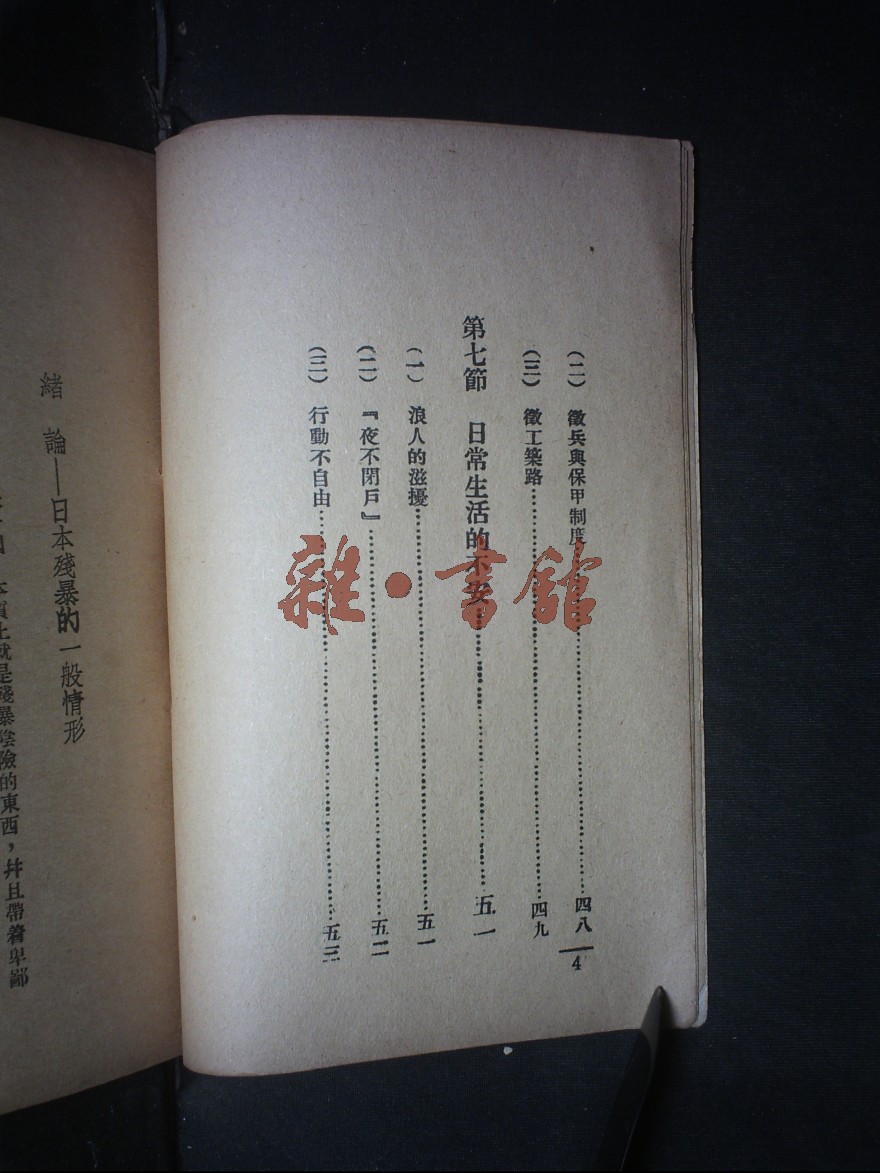 （二） 徵兵與保甲制度 四八
（三） 徵工築路 四九
第七節 日常生活的不安 五一
（一） 浪人的滋擾 五一
（二） 『夜不閉戶』 五二
（三） 行動不自由 五三
4
雜·書館
緒 論——日本殘暴的一般情形
本質上就是殘暴陰險的東西，幷且帶着卑鄙